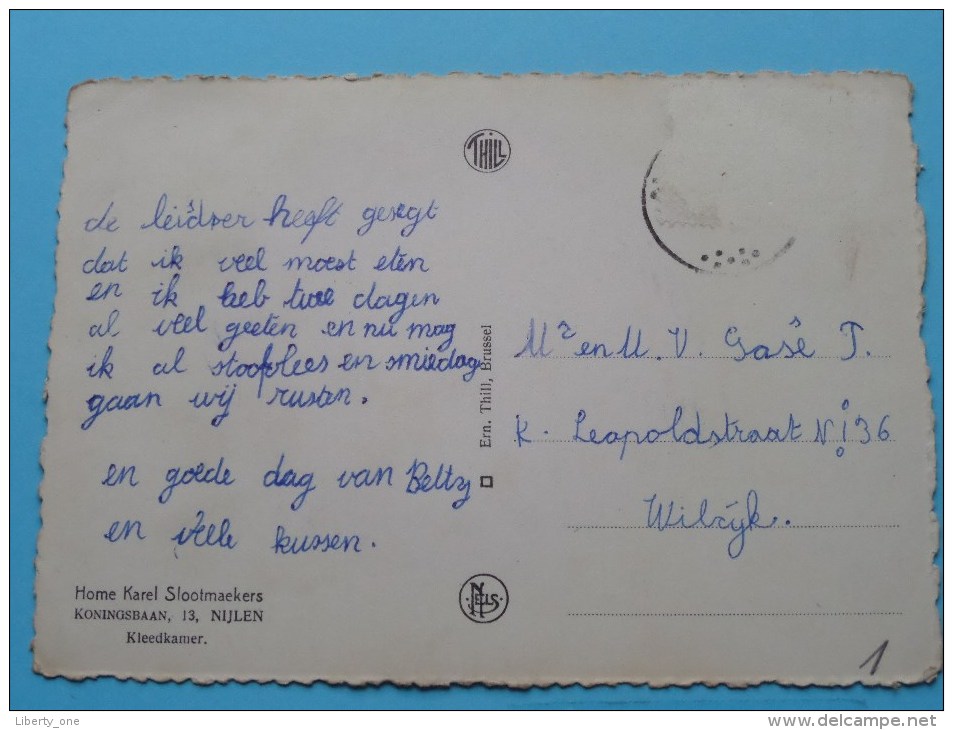 THILL
de leidser heeft gesegt
dat ik veel moest eten
en ik heb twee dagen
al veel geeten en nu mag
ik al stoofvlees en smiedags
gaan wij rusten.
en goede dag van Betty
en veele kussen.
Home Karel Slootmaekers
KONINGSBAAN, 13, NIJLEN
Kleedkamer.
Ern. Thill, Brussel
NELS
Mr en M. V. Gasê T.
K. Leopoldstraat N: 136
Wilrijk.
1
Liberty_one
www.delcampe.net